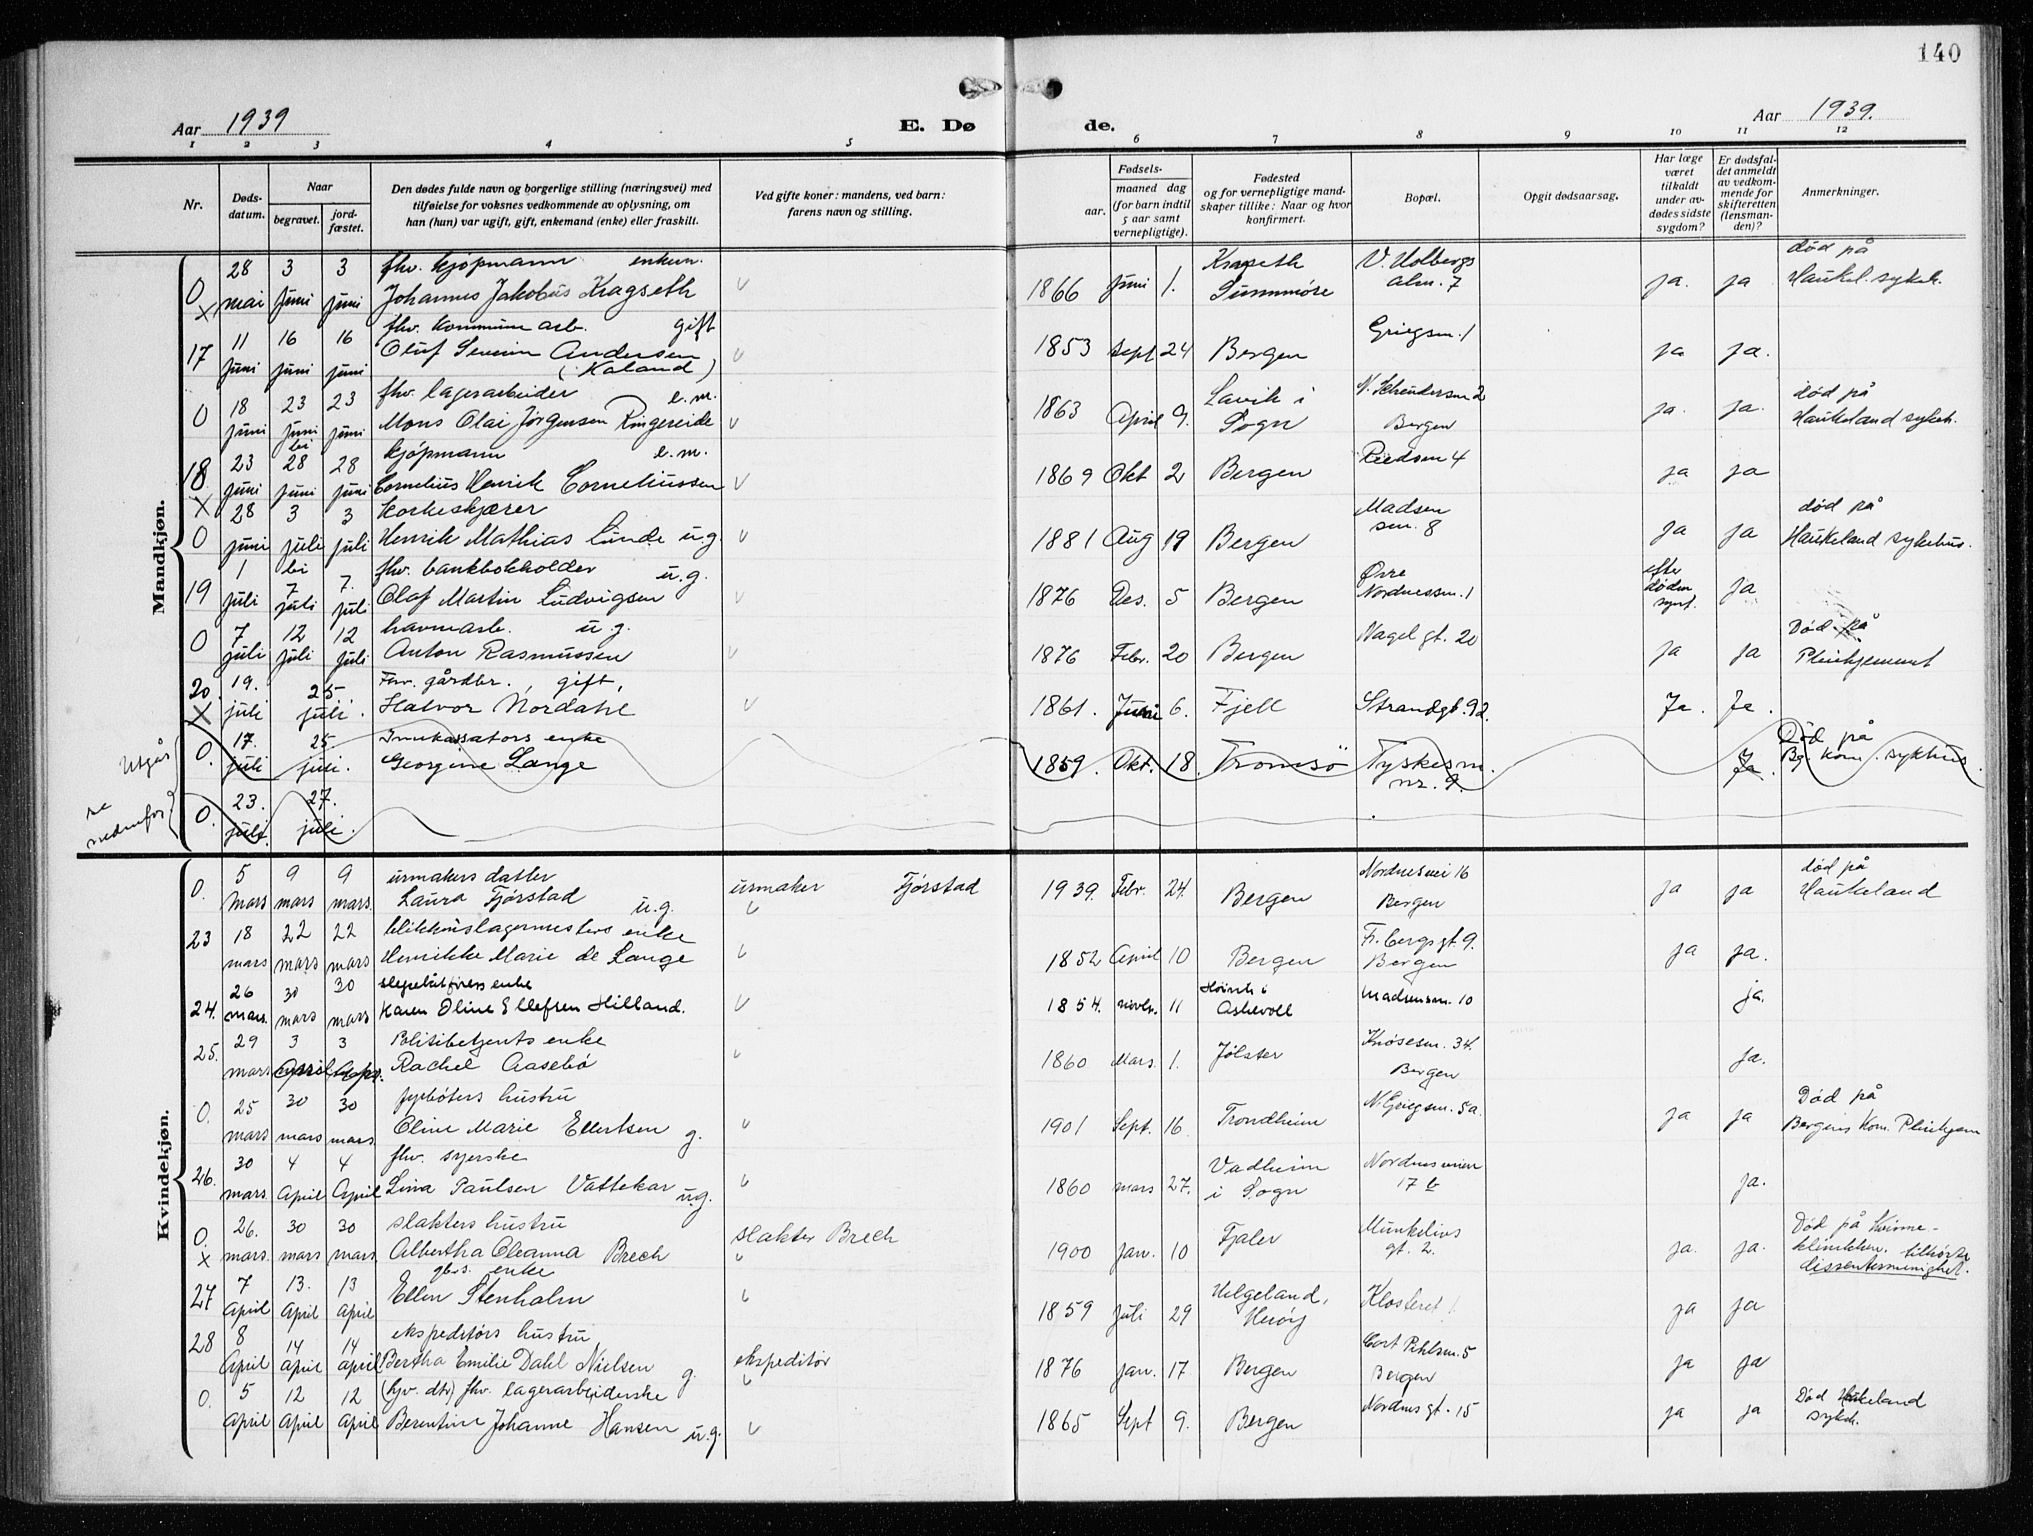 140
Aar 1939
E. Dø
de.
Aar 1939.
1 2 3 4 5 6 7 8 9 10 11 12
Nr.
Døds-
datum.
Naar
begravet.
jord-
fæstet.
Den dødes fulde navn og borgerlige stilling (næringsvei) med
tilføielse for voksnes vedkommende av oplysning, om
han (hun) var ugift, gift, enkemand (enke) eller fraskilt.
Ved gifte koner: mandens, ved barn:
farens navn og stilling.
Fødsels-
aar.
maaned dag
(for barn indtil
5 aar samt
vernepligtige).
Fødested
og for vernepligtige mand-
skaper tillike: Naar og hvor
konfirmert.
Bopæl.
Opgit dødsaarsag.
Har læge
været
tilkaldt
under av-
dødes sidste
sygdom?
Er dødsfal-
det anmeldt
av vedkom-
mende for
skifteretten
(lensman-
den)?
Anmerkninger.
Mandkjøn.
28 3 3 fhv. kjøpmann enkem. Kragseth V. Holbergs død på
0 x mai juni juni Johannes Jakobus Kragseth 1866 Juni 1. Sunnmøre alm. 7 ja. ja Haukel. sykeh.
11 16 16 fhv. kommunearb. gift Griegsm. 1
17 juni juni juni Oluf Severin Andersen 1853 Sept 24 Bergen ja ja.
(Kaland)
18 23 23 fhv. lagerarbeider e.m. Lavik i 2 død på
0 juni juni juni Mons Olai Jørgensen Ringereide 1863 April 9. Sogn Bergen ja. ja. Haukeland sykeh.
bi
23 28 28 kjøpmann e.m. 4
18 x juni juni juni Cornelius Henrik Corneliussen 1869 Okt 2 Bergen ja ja
28 3 3 Korkeskjærer Madsen død på
0 juni juli juli Henrik Mathias Lunde u.g. 1881 Aug 19 Bergen sm. 8 ja ja Haukeland sykehus.
bi
1 7 7. fhv. bankbokholder u.g. Øvre efter
19 juli juli juli Olaf Martin Ludvigsen 1876 Des. 5 Bergen Nordnessm. 1 døden synt. ja
7 12 12 havnearb. u.g. Nagel gt. 20 Død på
0 juli juli juli Anton Rasmussen 1876 Febr. 20 Bergen ja ja Pleiehjemmet
19. 25. Forr. gårdbr., gift,
20. x juli juli. Halvor Nordahl 1861. 6. Fjell Strandgt. 92. Ja. Ja.
Utgår
17. 25. Inukassators enke Død på
0. juli juli. Georgine Lange 1859. Okt. 18. Tromsö Tyskesm. nr. 9. Ja. Bg. kom. sykhus.
se
nedenfor
23. 27.
0. juli. juli.
Kvindekjøn.
5 9 9 urmakers datter Nordnesvei 16 død på
0. Mars mars mars. Laura Fjørstad u.g. urmaker Fjørstad 1939. Febr. 24. Bergen Bergen ja ja Haukeland
18 22 22 blikkenslagermesters enke Fr. bergsgt. 9.
23 mars mars mars Henrikke Marie de Lange 1852 April 10 Bergen Bergen ja ja.
26 30 30 slepebåtførers enke
24. mars. mars mars Karen Oline Ellefsen Hilland. 1854. novbr. 11 Askevoll Madsensm. 10 ja.
29 3 3 Politibetjents enke Knøsesm. 34.
25. mars April Apr. Rachel Aasebø 1860 Mars. 1. Jølster Bergen ja.
25 30 30 fyrbøters hustru N. Griegsm. 5a. Død på
0. mars mars mars. Oline Marie Ellertsen g. 1901 Sept. 16. Trondheim ja ja Bergens Kom. Pleiehjem
30 4 4 fhv. syerske Vadheim Nordnesveien
26. mars. April April Lina Paulsen Vattekar u.g. 1860 mars 27. i Sogn 17 b ja.
26. 30 30 slakters hustru Munkelivs Død på Kvinne-
0. x mars. mars mars Albertha Oleanna Brech slakter Brech 1900 Jan. 10 Fjaler gt. 2. ja. ja. klinikken. tilhørte
dissentermenighet.
7 13. 13 gbs. enke Helgeland,
27 April April April Ellen Stenholm 1859 Juli 29 Herøy Klosteret 1. ja ja
8 14 14 ekspeditørs hustru Cort Pihlsm. 5
28 April April April Bertha Emilie Dahl Nielsen g. ekspeditør 1876 Jan. 17 Bergen Bergen ja ja
5 12 12 (hjv. dtr) fhv. lagerarbeiderske Nordnesgt. 15 Død Haukeland
0. April April April Berentine Johanne Hansen u.g. 1865 Sept 9. Bergen ja ja sykeh.